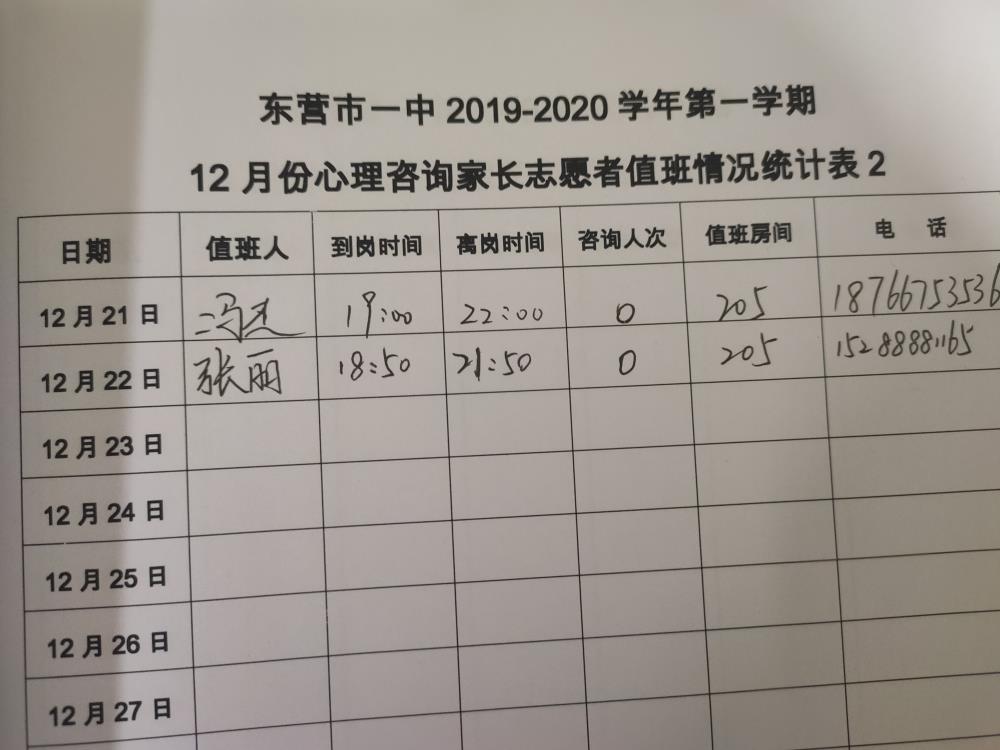 东营市一中2019-2020学年第一学期
12月份心理咨询家长志愿者值班情况统计表2
日期 值班人 到岗时间 离岗时间 咨询人次 值班房间 电话
12月21日 冯杰 19:00 22:00 0 205 18766753536
12月22日 张丽 18:50 21:50 0 205 15288881165
12月23日
12月24日
12月25日
12月26日
12月27日